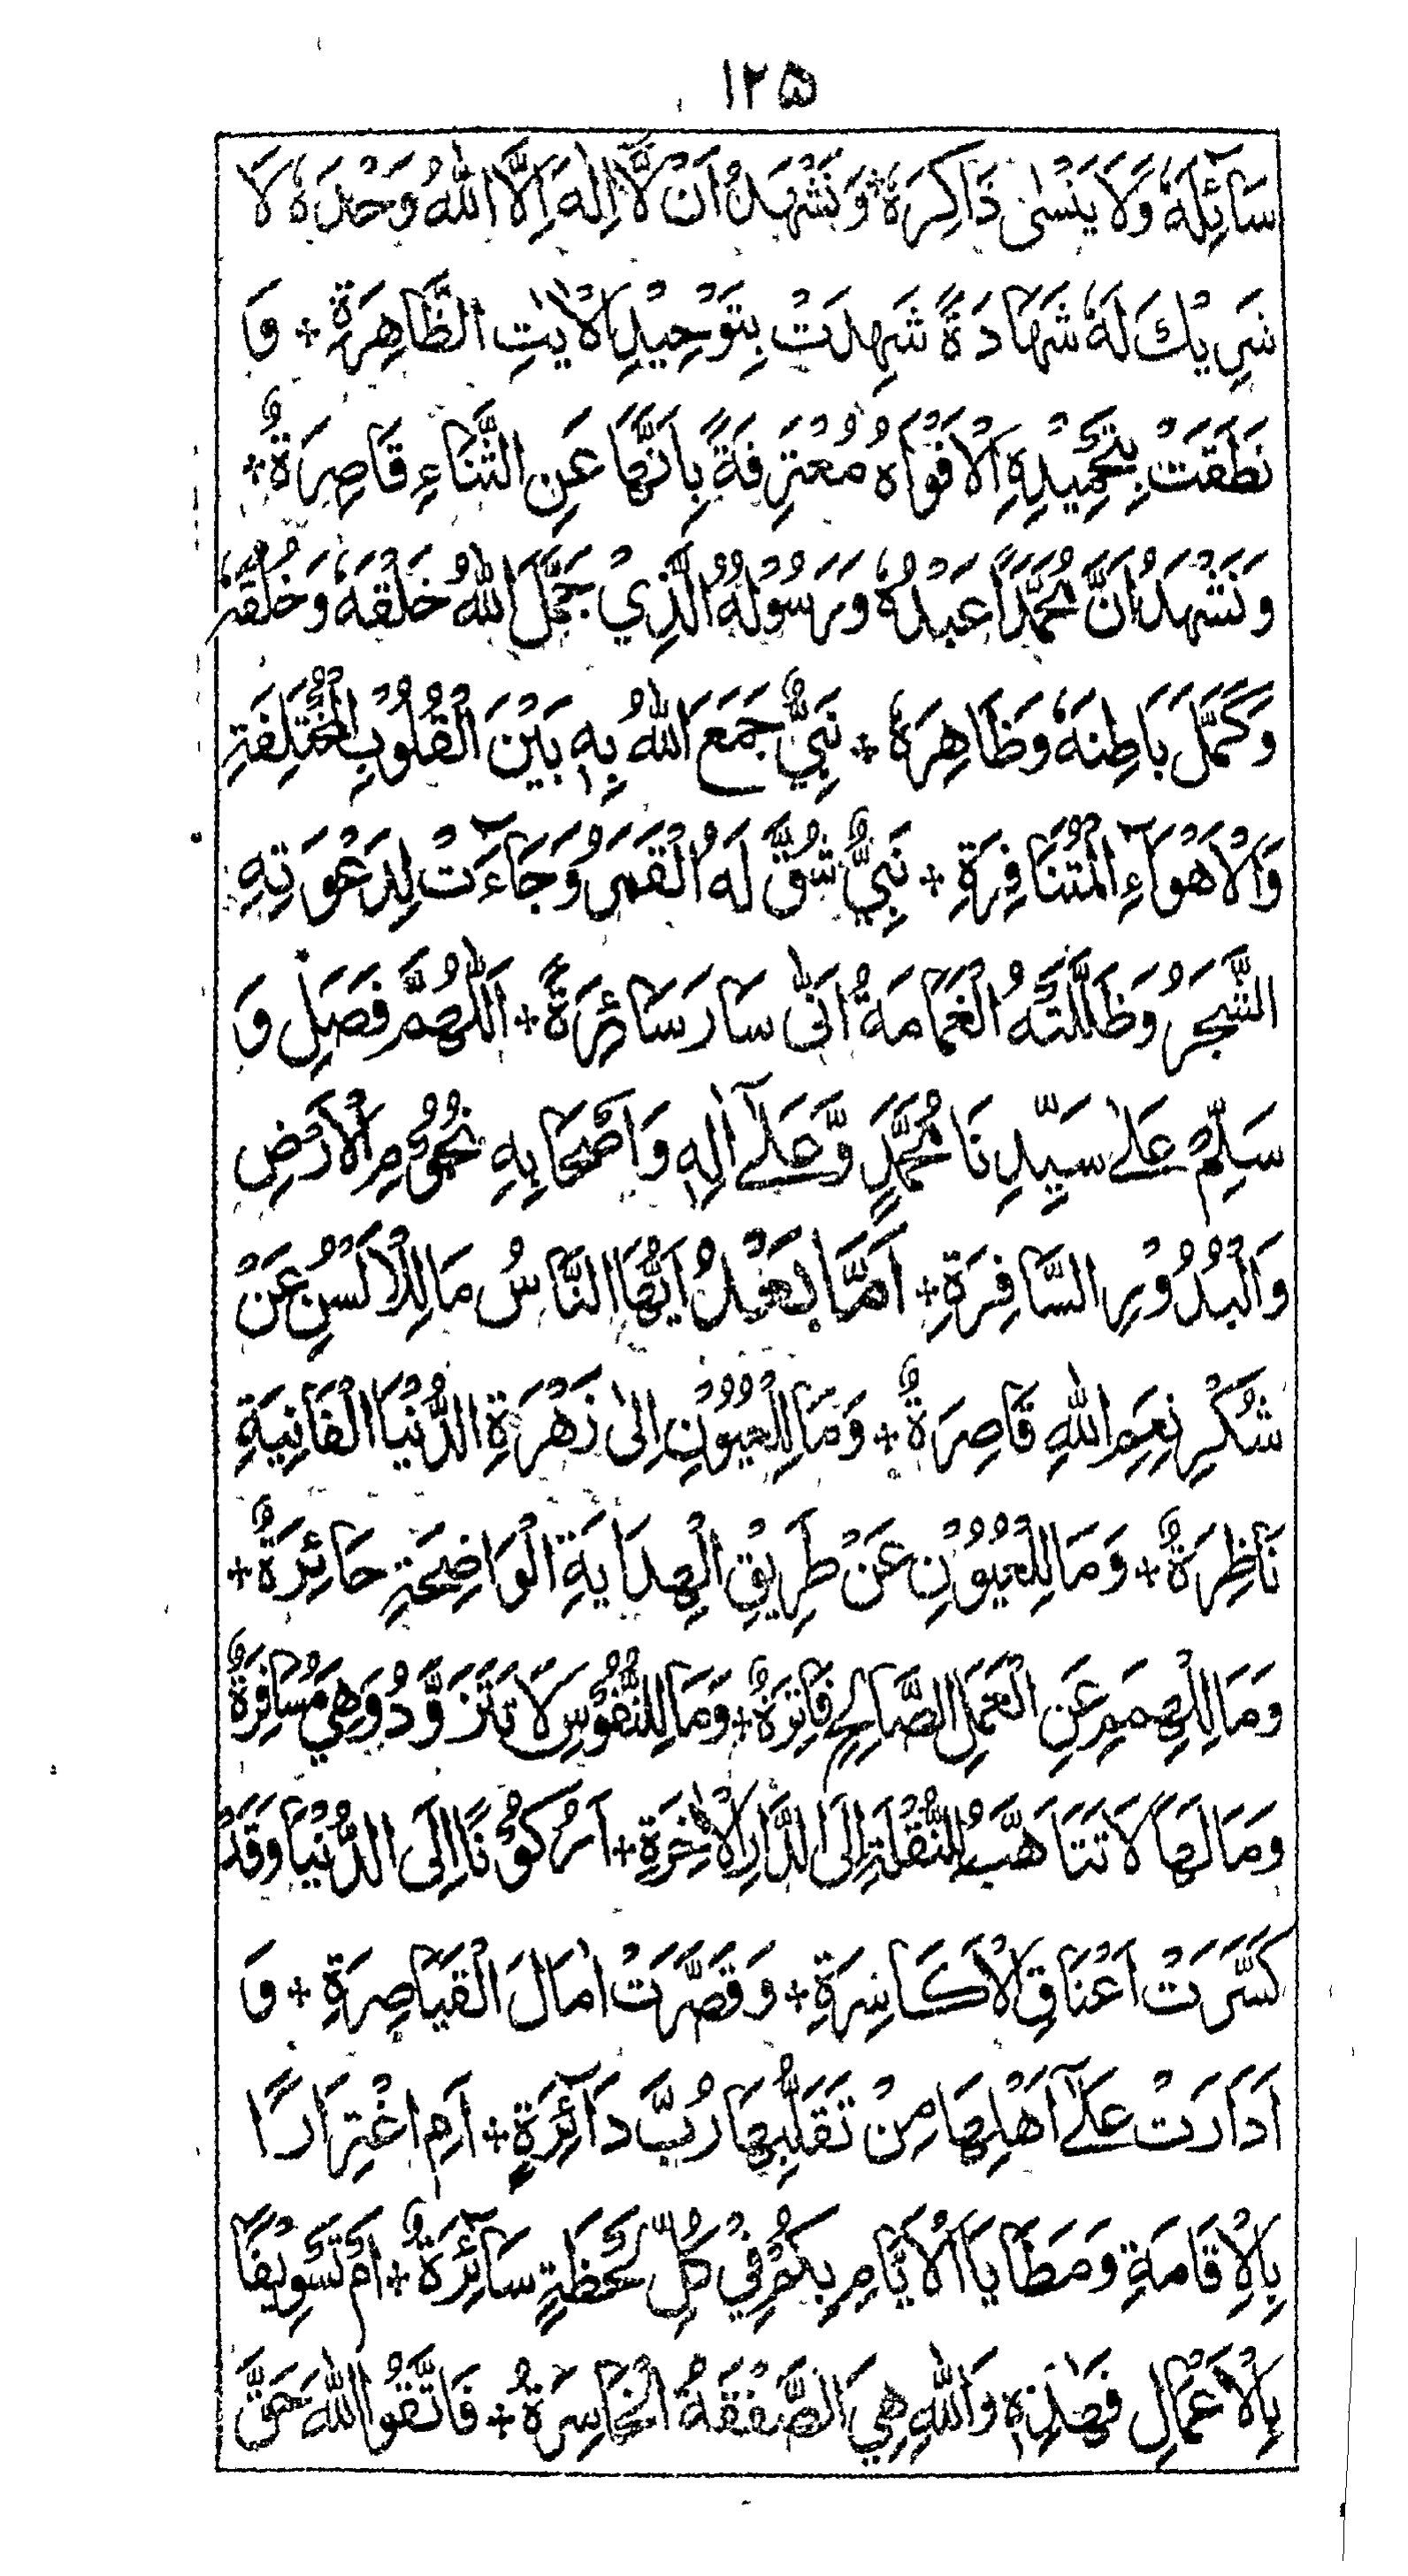 ۱۲۵
سَآئِلَهٗ وَلَا يَنْسٰى ذَاكِرَهٗ وَنَشْهَدُ اَنْ لَّآ اِلٰهَ اِلَّا اللّٰهُ وَحْدَهٗ لَا
شَرِيْكَ لَهٗ شَهَادَةً شَهِدَتْ بِتَوْحِيْدِهِ الْاٰيٰتِ الظَّاهِرَةِ + وَ
نَطَقَتْ بِتَحْمِيْدِهِ الْاَفْوَاهُ مُعْتَرِفَةً بِاَنَّهَا عَنِ الثَّنَاءِ قَاصِرَةٌ +
وَنَشْهَدُ اَنَّ مُحَمَّدًا عَبْدُهٗ وَرَسُوْلُهُ الَّذِيْ جَمَّلَ اللّٰهُ خَلْقَهٗ وَخُلُقَهٗ
وَكَمَّلَ بَاطِنَهٗ وَظَاهِرَهٗ + نَبِيٌّ جَمَعَ اللّٰهُ بِهٖ بَيْنَ الْقُلُوْبِ الْمُخْتَلِفَةِ
وَالْاَهْوَآءِ الْمُتَنَافِرَةِ + نَبِيٌّ شُقَّ لَهُ الْقَمَرُ وَجَآءَتْ لِدَعْوَتِهِ
الشَّجَرُ وَظَلَّلَتْهُ الْغَمَامَةُ اَنّٰى سَارَ سَائِرَةً + اَللّٰهُمَّ فَصَلِّ وَ
سَلِّمْ عَلٰے سَيِّدِنَا مُحَمَّدٍ وَّعَلٰے اٰلِهٖ وَاَصْحَابِهِ نُجُوْمِ الْاَرْضِ
وَالْبُدُوْرِ السَّافِرَةِ + اَمَّا بَعْدُ اَيُّهَا النَّاسُ مَا لِلْاَلْسُنِ عَنْ
شُكْرِ نِعَمِ اللّٰهِ قَاصِرَةٌ + وَمَا لِلْعُيُوْنِ اِلٰى زَهْرَةِ الدُّنْيَا الْفَانِيَةِ
نَاظِرَةٌ + وَمَا لِلْعُيُوْنِ عَنْ طَرِيْقِ الْهِدَايَةِ الْوَاضِحَةِ حَائِرَةٌ +
وَمَا لِلْهِمَمِ عَنِ الْعَمَلِ الصَّالِحِ فَاتِرَةٌ + وَمَا لِلنُّفُوْسِ لَا تَتَزَوَّدُ وَهِيَ مُسَافِرَةٌ
وَمَا لَهَا لَا تَتَاَهَّبُ لِلنُّقْلَةِ اِلَى الدَّارِ الْاٰخِرَةِ + اَرُكُوْنًا اِلَى الدُّنْيَا وَقَدْ
كَسَّرَتْ اَعْنَاقَ الْاَكَاسِرَةِ + وَقَصَّرَتْ اٰمَالَ الْقَيَاصِرَةِ + وَ
اَدَارَتْ عَلٰٓے اَهْلِهَا مِنْ تَقَلُّبِهَا رُبَّ دَآئِرَةٍ + اَمِ اغْتِرَارًا
بِالْاِقَامَةِ وَمَطَايَا الْاَيَّامِ بِكُمْ فِيْ كُلِّ لَحْظَةٍ سَآئِرَةٌ + اَمْ تَسْوِيْفًا
بِالْاَعْمَالِ فَهٰذِهٖ وَاللّٰهِ هِيَ الصَّفْقَةُ الْخَاسِرَةُ + فَاتَّقُوا اللّٰهَ حَقَّ